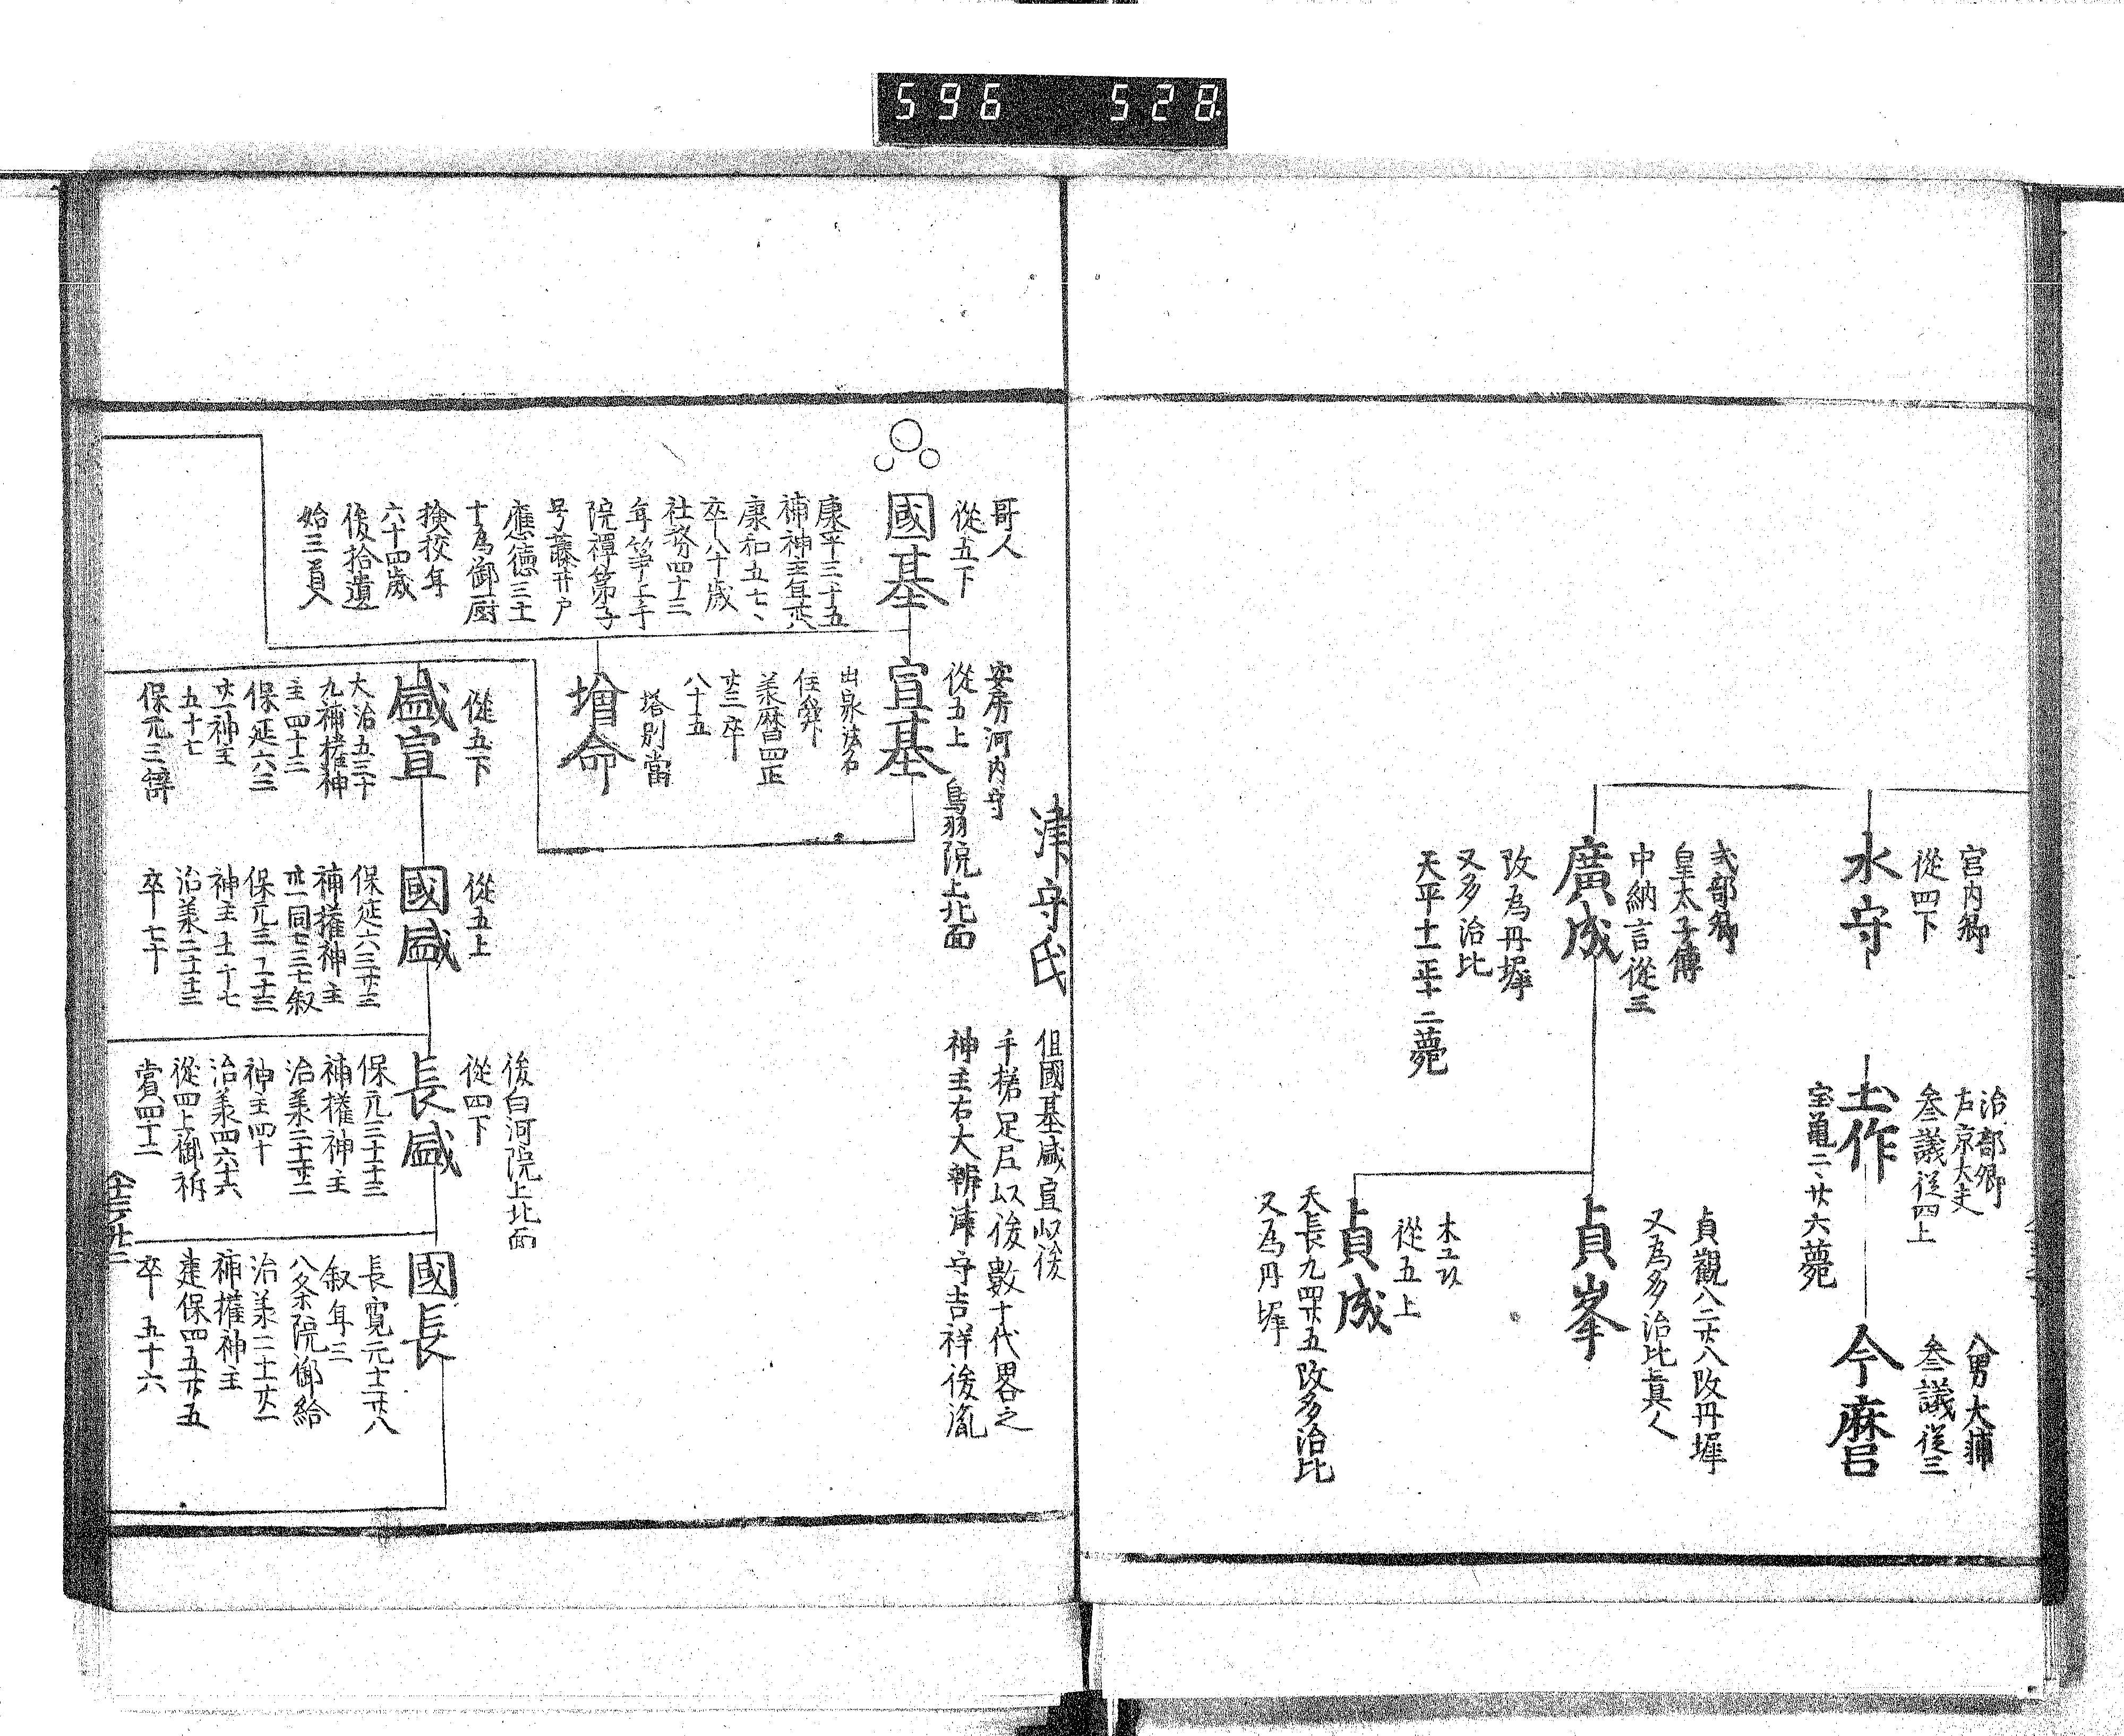 596 528
宮内卿
從四下
水守
治部卿
左京大夫
參議從四上
土作
宝亀二、廿六薨
八男大輔
參議從三
今麿
式部卿
皇太子傅
中納言從三
廣成
改為丹墀
又多治比
天平十一
二薨
貞觀八二廿八改丹墀
又為多治比眞人
貞峯
木工
從五上
貞成
天長九四廿五改多治比
又為丹墀
津守氏
但國基盛宣以後
手搓足尼以後數十代畧之
神主右大辨津守吉祥後胤
哥人
從五下
國基
康平三
補神主年
康和五七、
卒八十歳
社務四十三
年箏上手
院禪第子
号藤井戸
應德三
十為御厨
撿挍年
六十四歳
後拾遺
始三員入
安房河内守
從五上 鳥羽院上北面
宣基
出家法名
住
養暦四正
廿三卒
八十五
増命
塔別當
從五下
盛宣
大治五三十
九補權神
主四十三
保延六三
神主
五十七
保元三辭
從五上
國盛
保延六三廿三
補權神主
同七三七叙
保元三
神主
治養二
卒七十
後白河院上北面
從四下
長盛
保元三十
補權神主
治養二
神主四十
治養四六
從四上御祈
賞四十二
國長
長寛元十二廿八
叙年三
八条院御給
治養二十
補權神主
建保四五廿五
卒 五十六